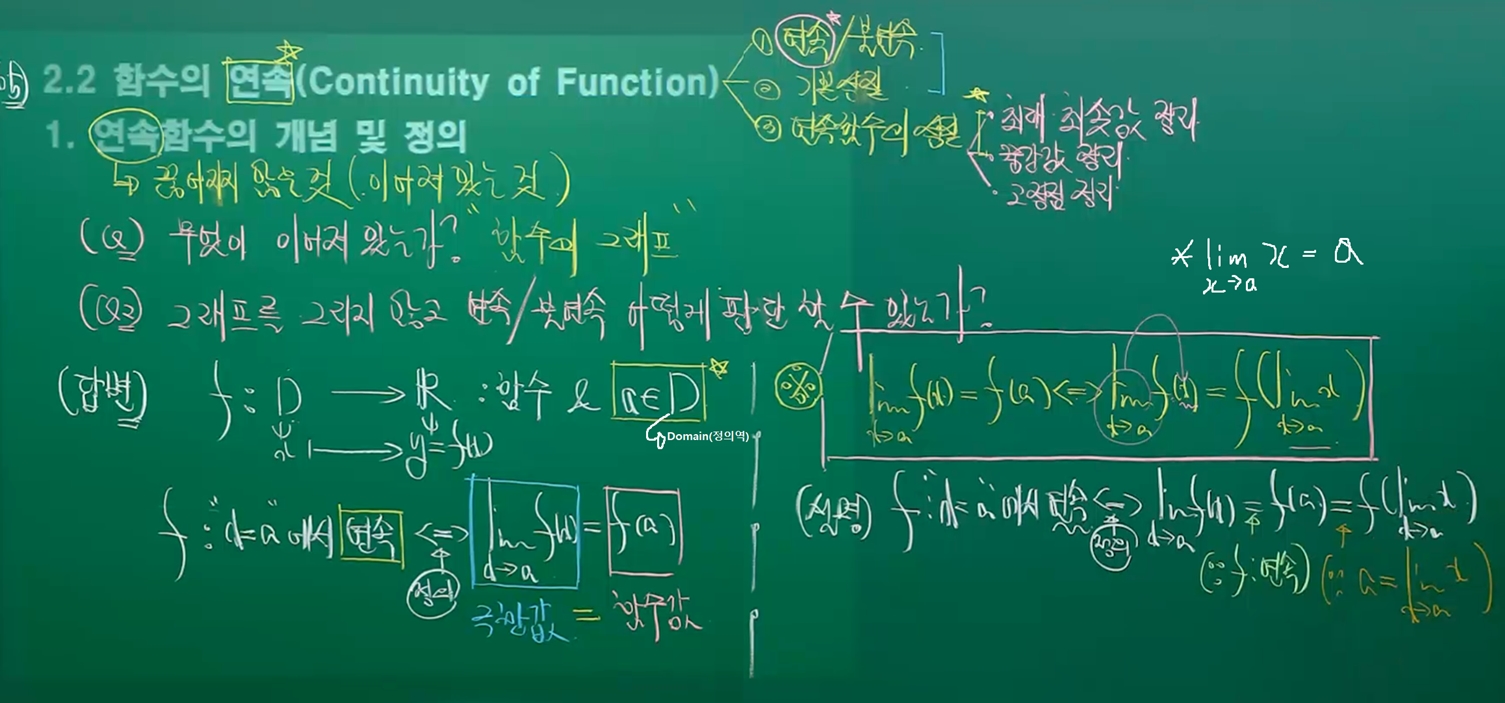 2.2 함수의 연속(Continuity of Function)
① 연속/불연속
② 기본성질
③ 연속함수의 성질
· 최대 최솟값 정리
· 중간값 정리
· 고정점 정리
1. 연속함수의 개념 및 정의
↳ 끊어지지 않은 것 (이어져 있는 것)
(Q) 무엇이 이어져 있는가? "함수의 그래프"
(Q2) 그래프를 그리지 않고 연속/불연속 어떻게 판단할 수 있는가?
(답변) f : D → R : 함수 & a∈D
Domain(정의역)
x ↦ y = f(x)
f : "x=a"에서 연속 <=> lim x→a f(x) = f(a)
정의
극한값 = 함숫값
* lim x→a x = a
※ lim x→a f(x) = f(a) <=> lim x→a f(x) = f(lim x→a x)
(설명) f : "x=a"에서 연속 <=> lim x→a f(x) = f(a) = f(lim x→a x)
정의
(∵ f : 연속) (∵ a = lim x→a x)